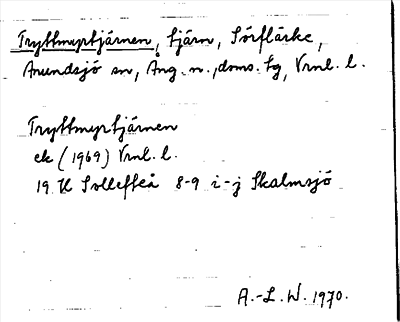 Tryttmyrtjärnen, tjärn, Sörflärke,
Anundsjö sn, Ång. n., doms. tg, Vrnl. l.
Tryttmyrtjärnen
ek (1969) Vrnl. l.
19 H Sollefteå 8-9 i-j Skalmsjö
A.-L. W. 1970.